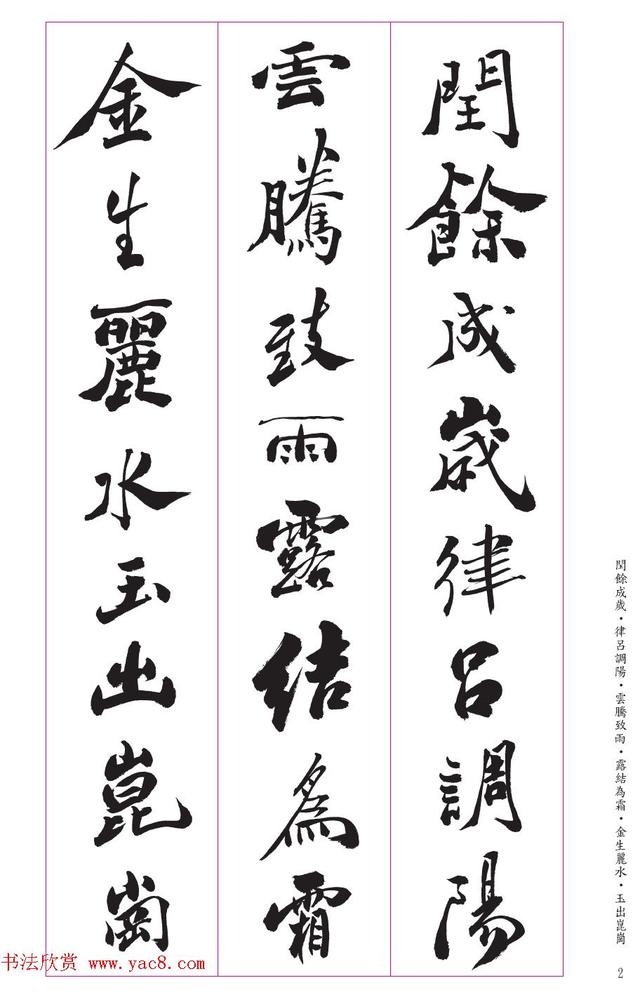 閏餘成歲律呂調陽
雲騰致雨露結為霜
金生麗水玉出崑崗
閏餘成歲・律呂調陽・雲騰致雨・露結為霜・金生麗水・玉出崑崗
2
书法欣赏 www.yac8.com